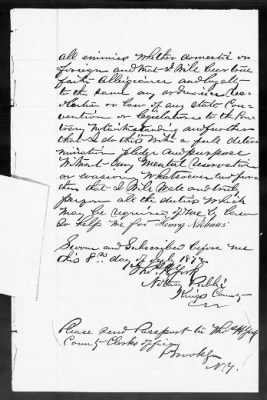 all enimies whether domestic or
foreign and that I will bear true
faith Allegiance and loyalty
to the same any ordinance Res-
olution or Law of any state Con-
vention or legislature to the Con-
trary Notwithstanding and further
that I do this with a full deter-
mination pledge and purpose
without any Mental Reservation
or evasion Whatsoever and fur-
ther that I will Well and truly
perform all the duties Which
may be required of me by Law
so help me god Henry Nichaus
Sworn and Subscribed before me
this 8th day of July 187
Notary Public
Kings County
Please send Passport to
County Clerks office
Brooklyn
N.Y.